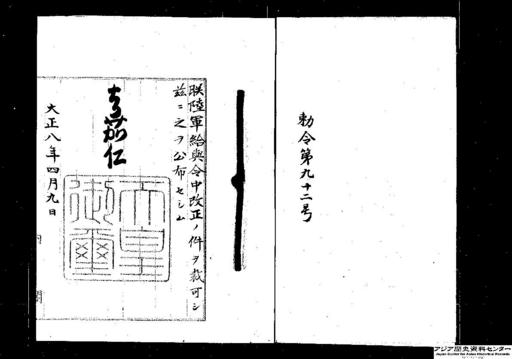 勅令第九十二号
朕陸軍給與令中改正ノ件ヲ裁可シ
茲ニ之ヲ公布セシム
嘉仁
天皇御璽
大正八年四月九日
アジア歴史資料センター
Japan Center for Asian Historical Records